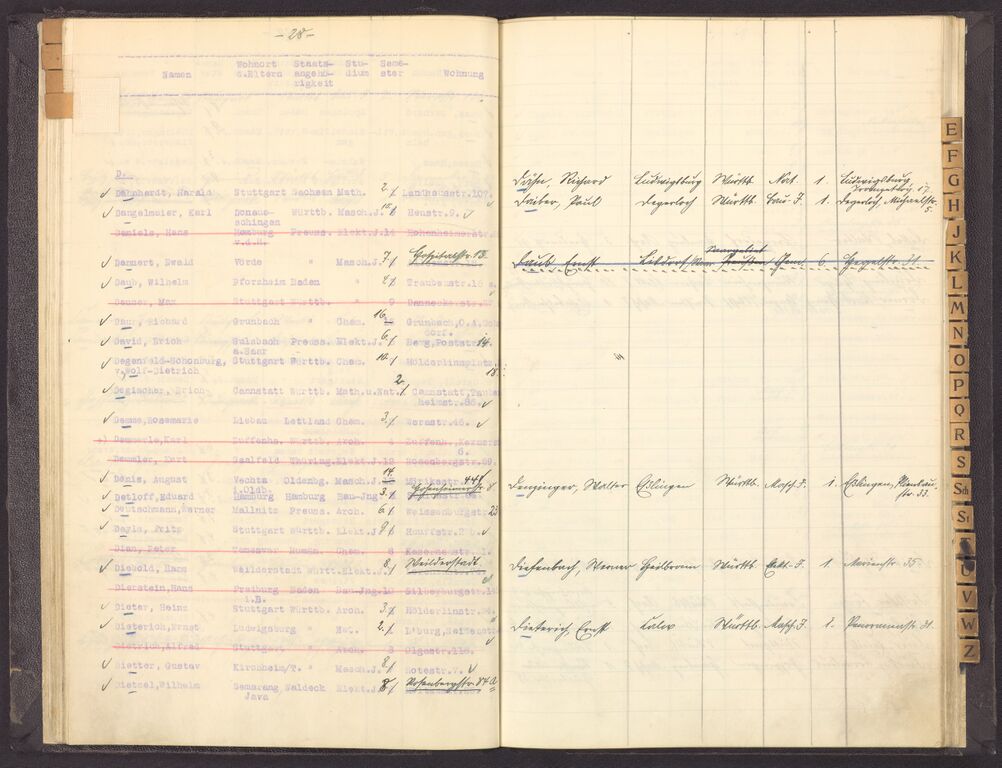 - 28 -
Namen Wohnort d.Eltern Staats- angehö- rigkeit Stu- dium Seme- ster Wohnung
D.
Dähnhardt, Harald Stuttgart Sachsen Math. 2 Landhausstr.107.
Dangelmaier, Karl Donaue- schingen Württb. Masch.J. Heustr.9.
Daniels, Hans Homburg v.d.H. Preuss. Elekt.J.14 Hohenheimerstr.
Dannert, Ewald Vörde " Masch.J. 7 Hospitalstr. 13.
Daub, Wilhelm Pforzheim Baden " 4 Traubenstr.15
Dauner, Max Stuttgart Württb. " 9 Danneckerstr.
Daur, Richard Grunbach " Chem. 16. Grunbach,O.A.Schorn- dorf.
David, Erich Sulzbach a.Saar Preuss. Elekt.J. 6. Berg,Poststr.14.
Degenfeld-Schonburg, v,Wolf-Dietrich Stuttgart Württb. Chem. 10. Hölderlinplatz 18.
Degischer, Erich Cannstatt Württb. Math.u.Nat. 2. Cannstatt,Tauben- heimstr.86.
Demme,Rosemarie Libau Lettland Chem. 3. Werastr.46.
Demmerle,Karl Zuffenhs. Württb. Arch. 4 Zuffenh.,Kernerstr. 6.
Demmler, Kurt Saalfeld Thüring.Elekt.J.12 Rosenbergstr.69.
Denis, August Vechta i.Oldb. Oldenbg. Masch.J. 14. Mörikestr. 44
Detloff,Eduard Hamburg Hamburg Bau-Jng. 3.
Deutschmann,Werner Mallnitz Preuss. Arch. 6 Weissenburgstr.23
Deyle, Fritz Stuttgart Württb. Elekt.J. 9 Hauffstr.
Dian, Peter Temesvar Rumän. Chem. 6 Kasernenstr.
Diebold, Hans Weilderstadt Württ.Elekt.J. 8. Weilderstadt.
Dierstein,Hans Freiburg i.B. Baden Bau-Jng.10 Silberburgstr.
Dieter, Heinz Stuttgart Württb. Arch. 3. Hölderlinstr.
Dieterich,Ernst Ludwigsburg " Nat. 2. L'burg,Seestr.
Dietrich,Alfred Stuttgart " Arch. 8 Olgastr.116.
Dietter, Gustav Kirchheim/T. " Masch.J. 8 Rotestr.
Dietzel,Wilhelm Semarang Java Waldeck Elekt.J. 8 Rosenbergstr. 84 a
Dähn, Richard Ludwigsburg Württb Nat. 1. Ludwigsburg
Daiber, Paul Degerloch Württb. Bau-J. 1. Degerloch, Michaelstr. 5.
Daub Ernst Preußen Chem. 6 Hegelstr. 31
Denzinger, Walter Eßlingen Württb. Masch.J. 1. Eßlingen, PlienSau- str. 33.
Diefenbach, Werner Heilbronn Württb Elekt.J. 1. Marienstr. 35.
Dieterich, Ernst Calw Württb. Masch.J. 1. Panoramastr. 31.
E
F
G
H
J
K
L
M
N
O
P
Q
R
S
Sch
St
U
V
W
Z